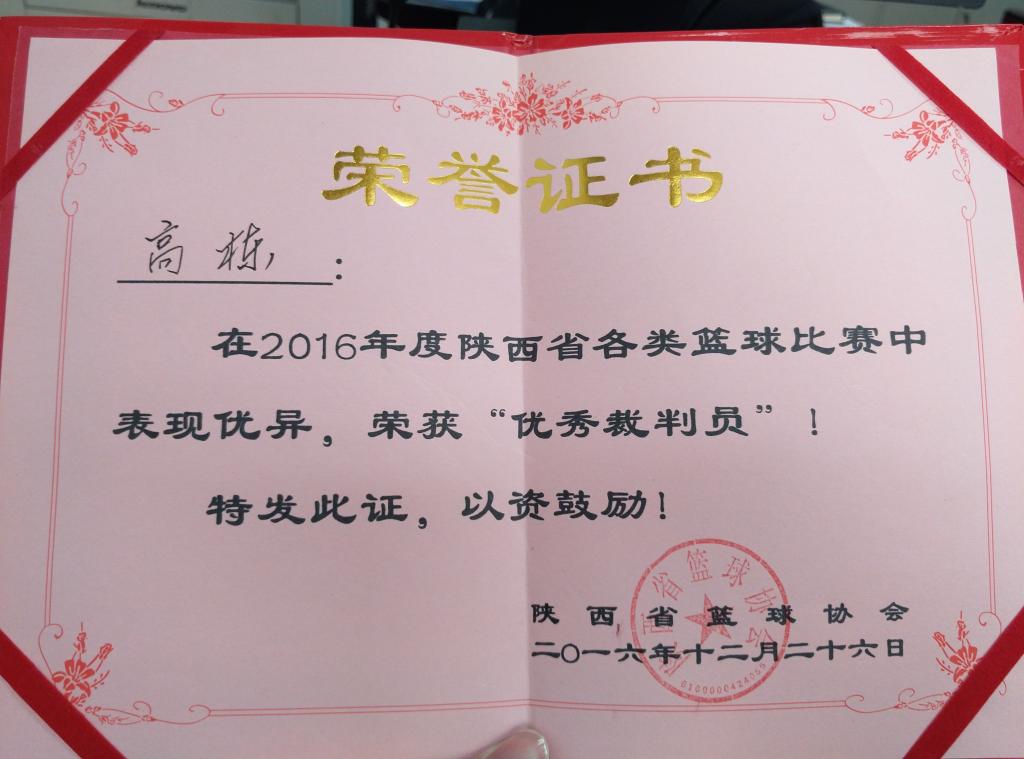 荣誉证书
高栋:
在2016年度陕西省各类篮球比赛中
表现优异，荣获“优秀裁判员”！
特发此证，以资鼓励！
陕西省篮球协会
二〇一六年十二月二十六日
陕西省篮球协会